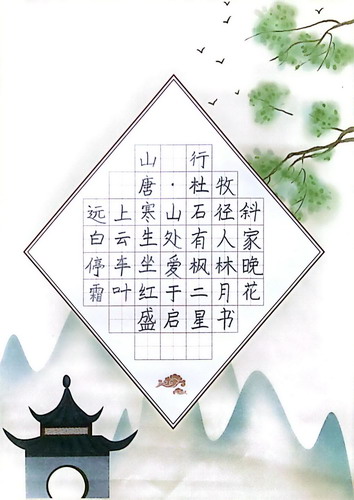 山 行
唐·杜牧
远上寒山石径斜
白云生处有人家
停车坐爱枫林晚
霜叶红于二月花
盛启星书